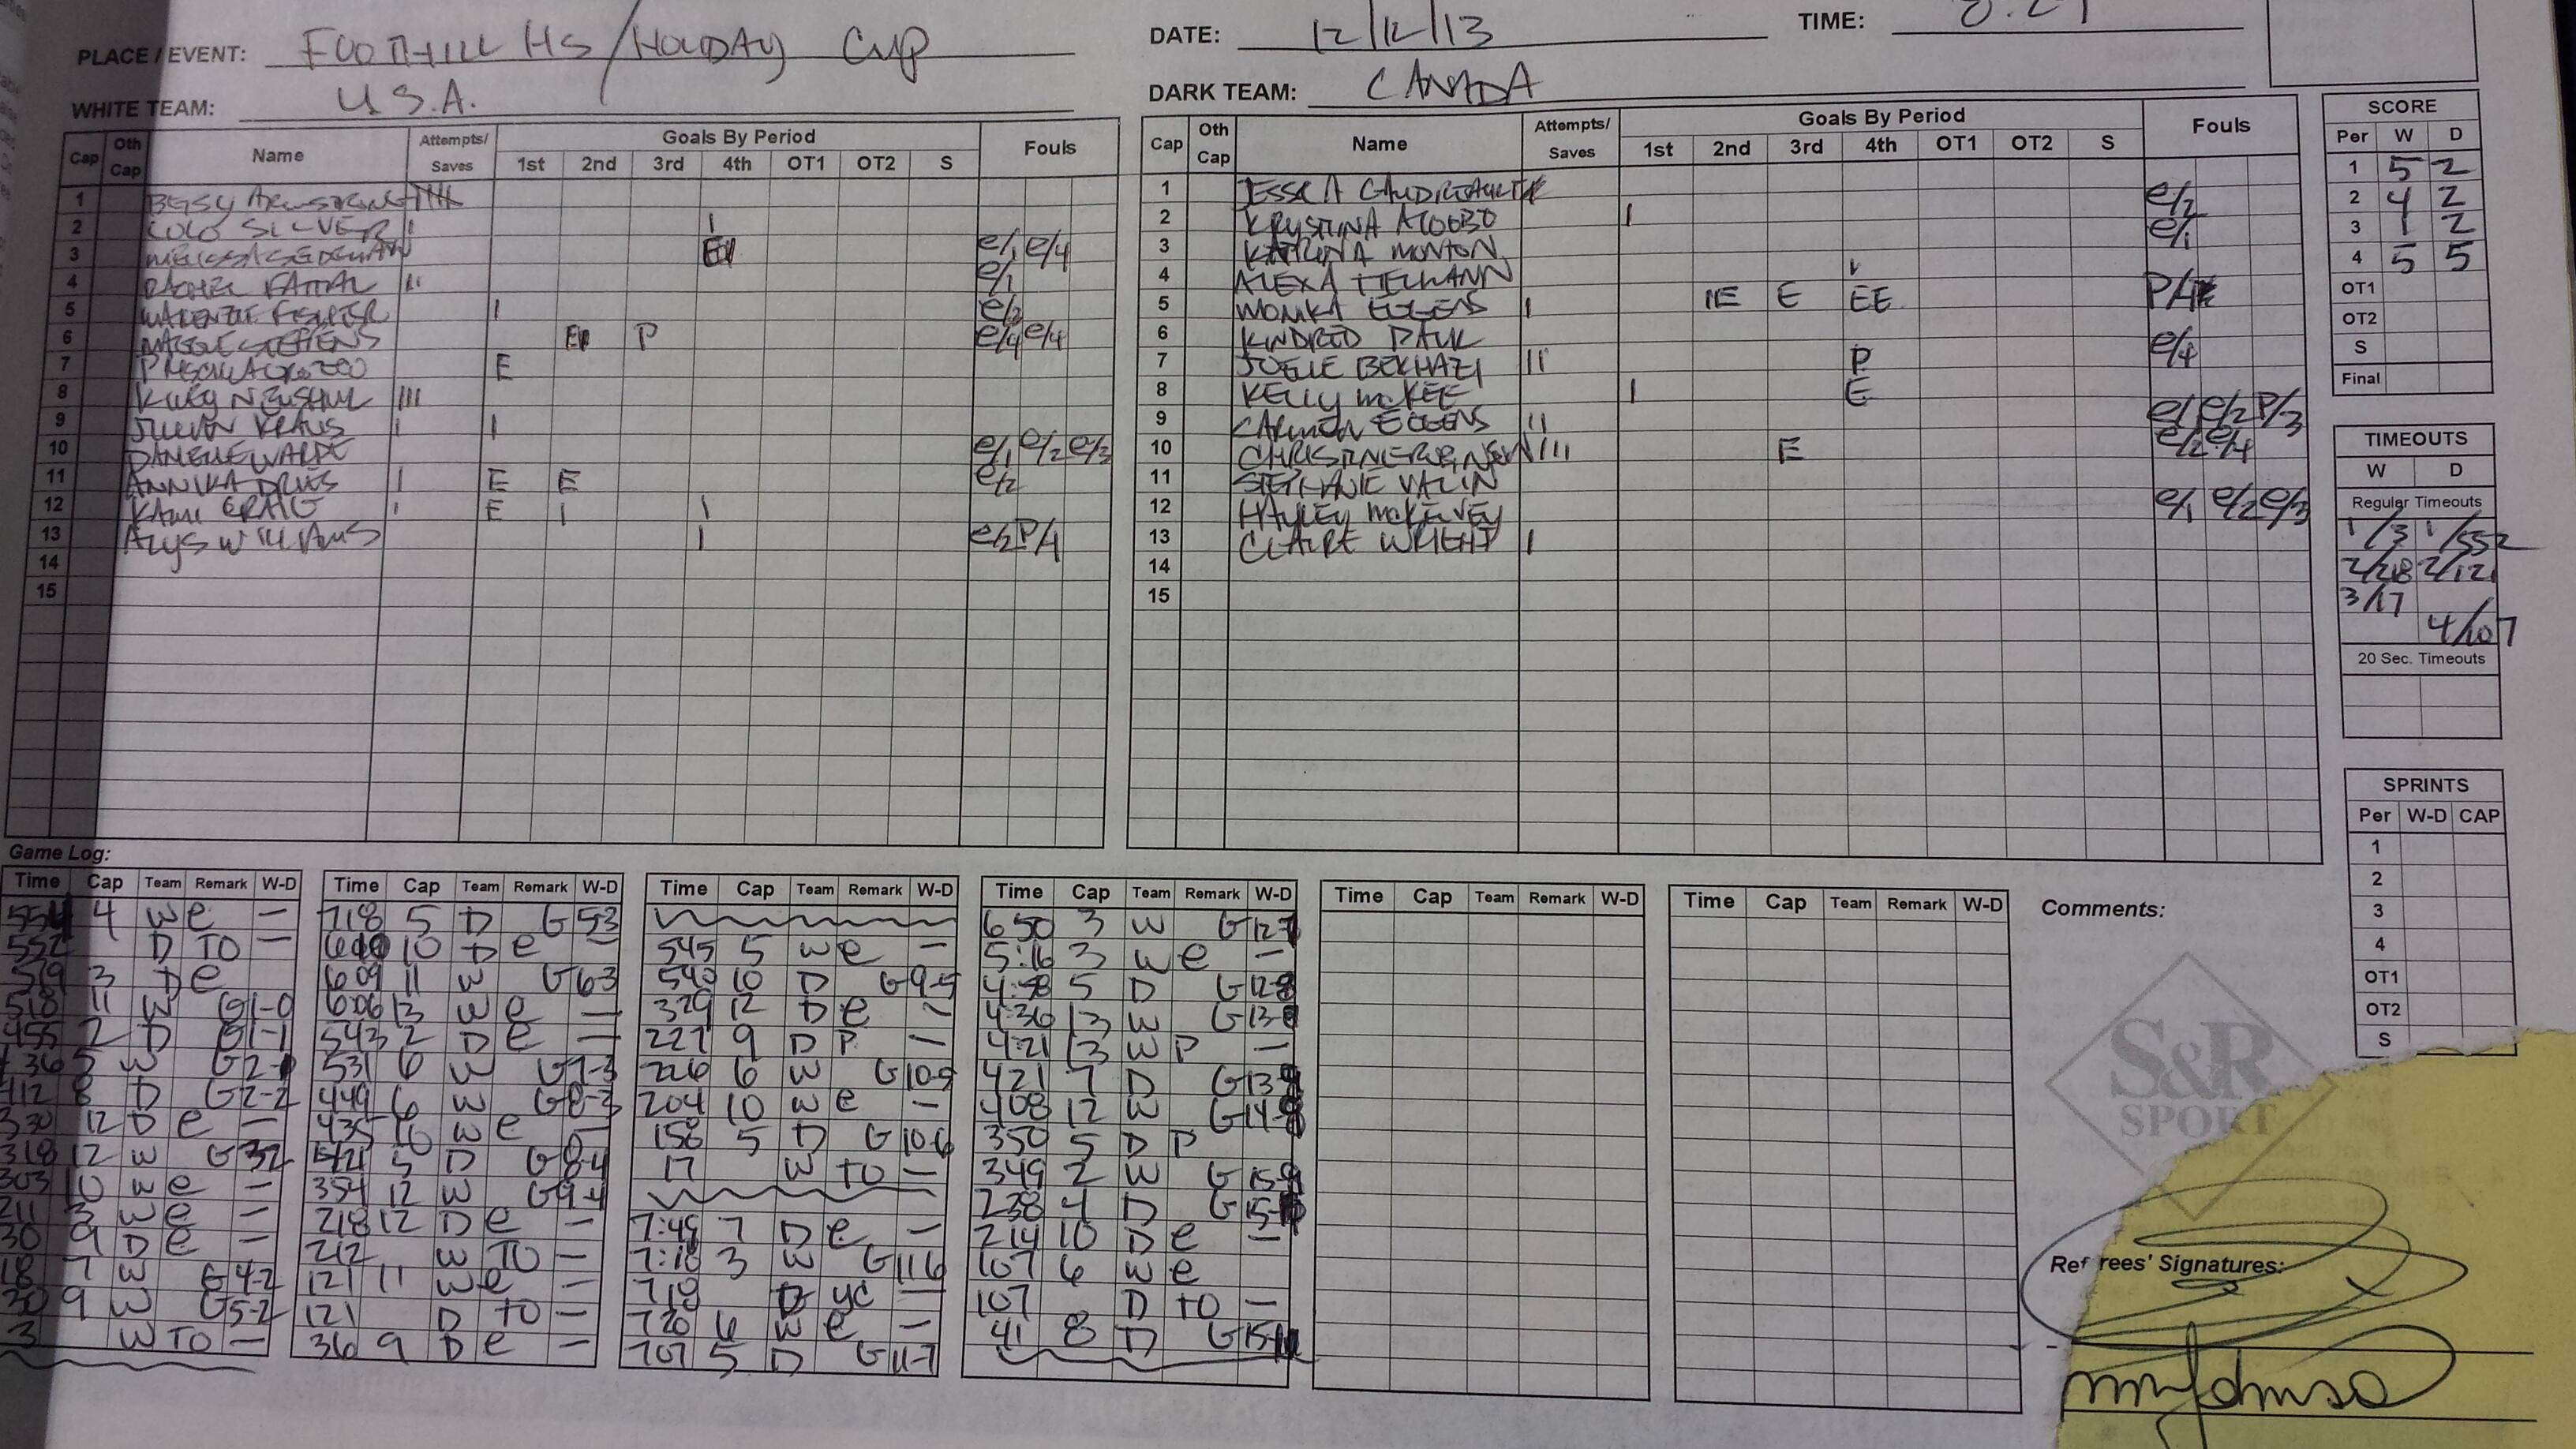 PLACE / EVENT: FOOTHILL HS / HOLIDAY CUP
DATE: 12/12/13
TIME:
WHITE TEAM: U.S.A.
DARK TEAM: CANADA
Cap Oth Cap Name Attempts/ Saves Goals By Period Fouls
1st 2nd 3rd 4th OT1 OT2 S
1 BETSY ARMSTRONG
2 COCO SILVER I I
3 e/1 e/4
4 RACHEL FATTAL II e/1
5 MAKENZIE FISCHER I e/3
6 MAGGIE STEFFENS P e/4 e/4
7 E
8 KILEY NEUSHUL III
9 JILLIAN KRAUS I I
10 e/1 e/2 e/3
11 ANNIKA DRIES I E E e/2
12 KAMI CRAIG I E I I
13 ALYS WILLIAMS I e/2 P/4
14
15
Cap Oth Cap Name Attempts/ Saves Goals By Period Fouls
1st 2nd 3rd 4th OT1 OT2 S
1 JESSICA
2 KRYSTINA I e/2
3 KATRINA MONTON e/1
4 ALEXA TIELMANN I
5 MONIKA EGGENS I IE E EE P/4
6 KINDRED PAUL
7 JOELLE BEKHAZI II P e/4
8 KELLY McKEE I E
9 CARMEN EGGENS II e/1 e/2 P/3
10 III E e/2 e/4
11 STEPHANIE VALIN
12 HAYLEY McKELVEY e/1 e/2 e/3
13 CLAIRE WRIGHT I
14
15
SCORE
Per W D
1 5 2
2 4 2
3 1 2
4 5 5
OT1
OT2
S
Final
TIMEOUTS
W D
Regular Timeouts
1/3 1/552
2/212 2/121
3/17
4/107
20 Sec. Timeouts
SPRINTS
Per W-D CAP
1
2
3
4
OT1
OT2
S
Game Log:
Time Cap Team Remark W-D
554 4 W e —
552 D TO —
519 3 D e
518 11 W G 1-0
455 2 D G 1-1
436 5 W G 2-1
412 8 D G 2-2
330 12 D e —
318 12 W G 3-2
303 10 W e —
211 3 W e —
30 9 D e —
18 7 W G 4-2
9 W G 5-2
3 W TO —
Time Cap Team Remark W-D
718 5 D G 5-3
10 D e —
609 11 W G 6-3
606 13 W e —
543 2 D e —
531 6 W G 7-3
449 6 W G 8-3
435 10 W e —
5 D G 8-4
354 12 W G 9-4
218 12 D e —
212 W TO —
121 11 W e —
121 D TO —
36 9 D e —
Time Cap Team Remark W-D
545 5 W e —
540 10 D G 9-5
329 12 D e —
227 9 D P —
226 6 W G 10-5
204 10 W e —
156 5 D G 10-6
17 W TO —
7:49 7 D e —
7:18 3 W G 11-6
718 D YC —
720 6 W e —
707 5 D G 11-7
Time Cap Team Remark W-D
650 3 W G 12-7
5:16 3 W e —
4:58 5 D G 12-8
4:36 13 W G 13-8
4:21 13 W P —
421 7 D G 13-9
408 12 W G 14-9
350 5 D P
349 2 W G 15-9
238 4 D G 15-10
214 10 D e —
107 6 W e
107 D TO —
41 8 D G 15-11
Time Cap Team Remark W-D
Time Cap Team Remark W-D
Comments:
S&R
SPORT
Referees' Signatures: